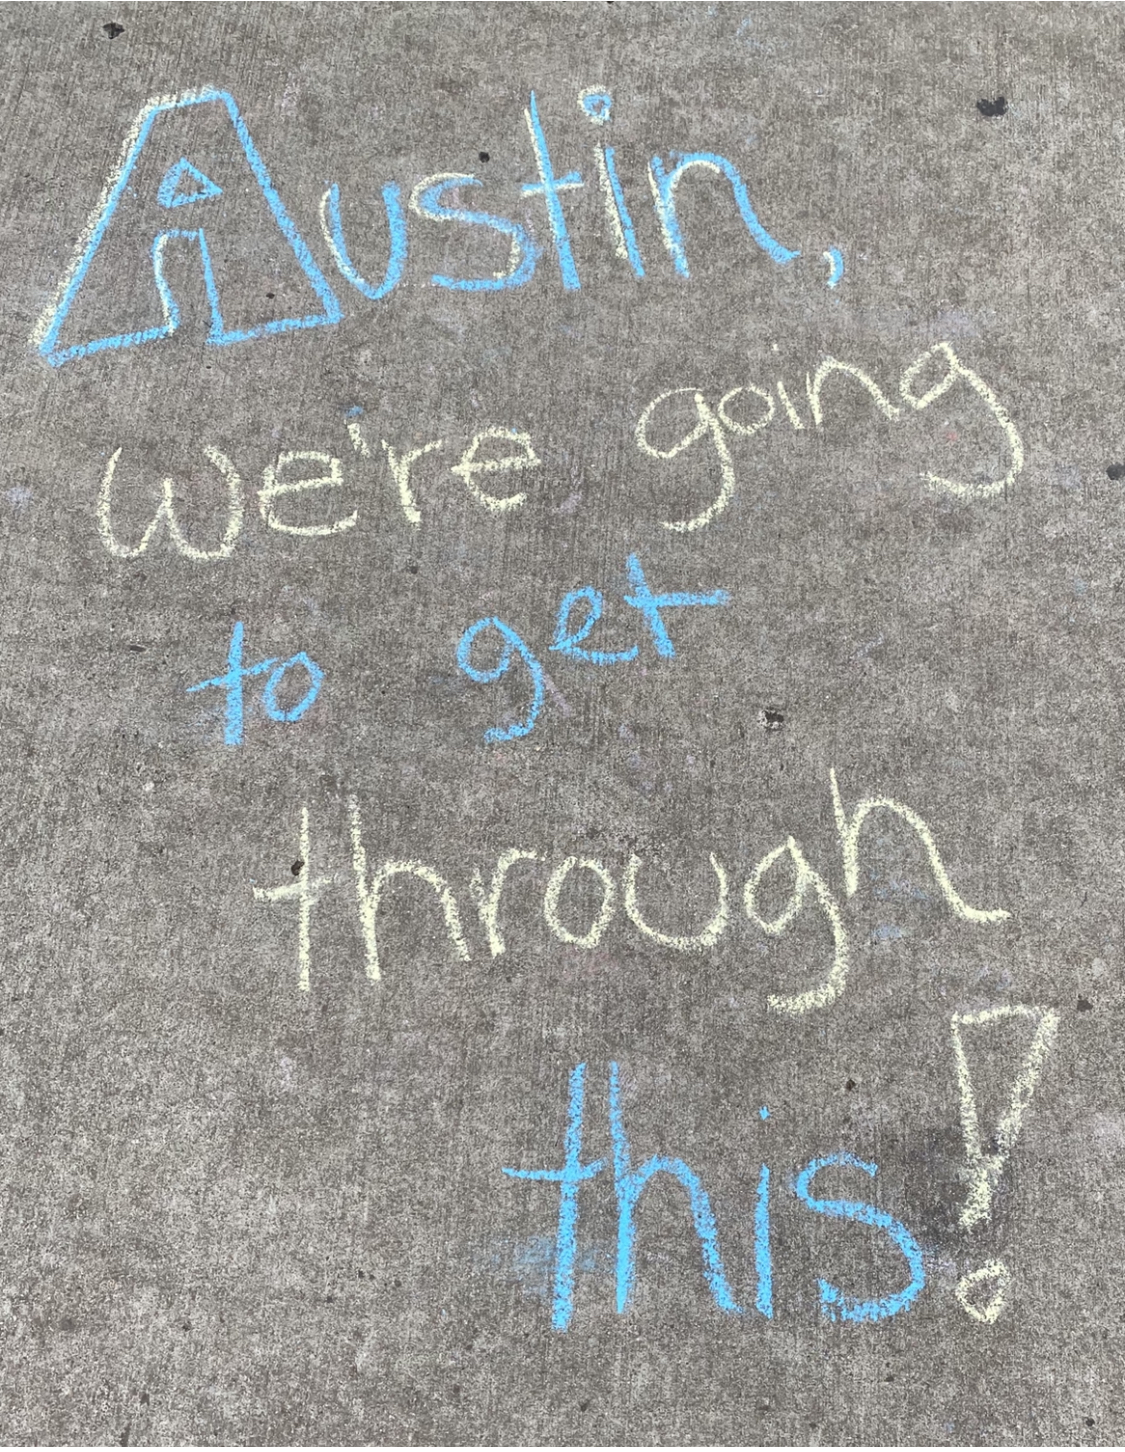 Austin,
we're going
to get
through
this!